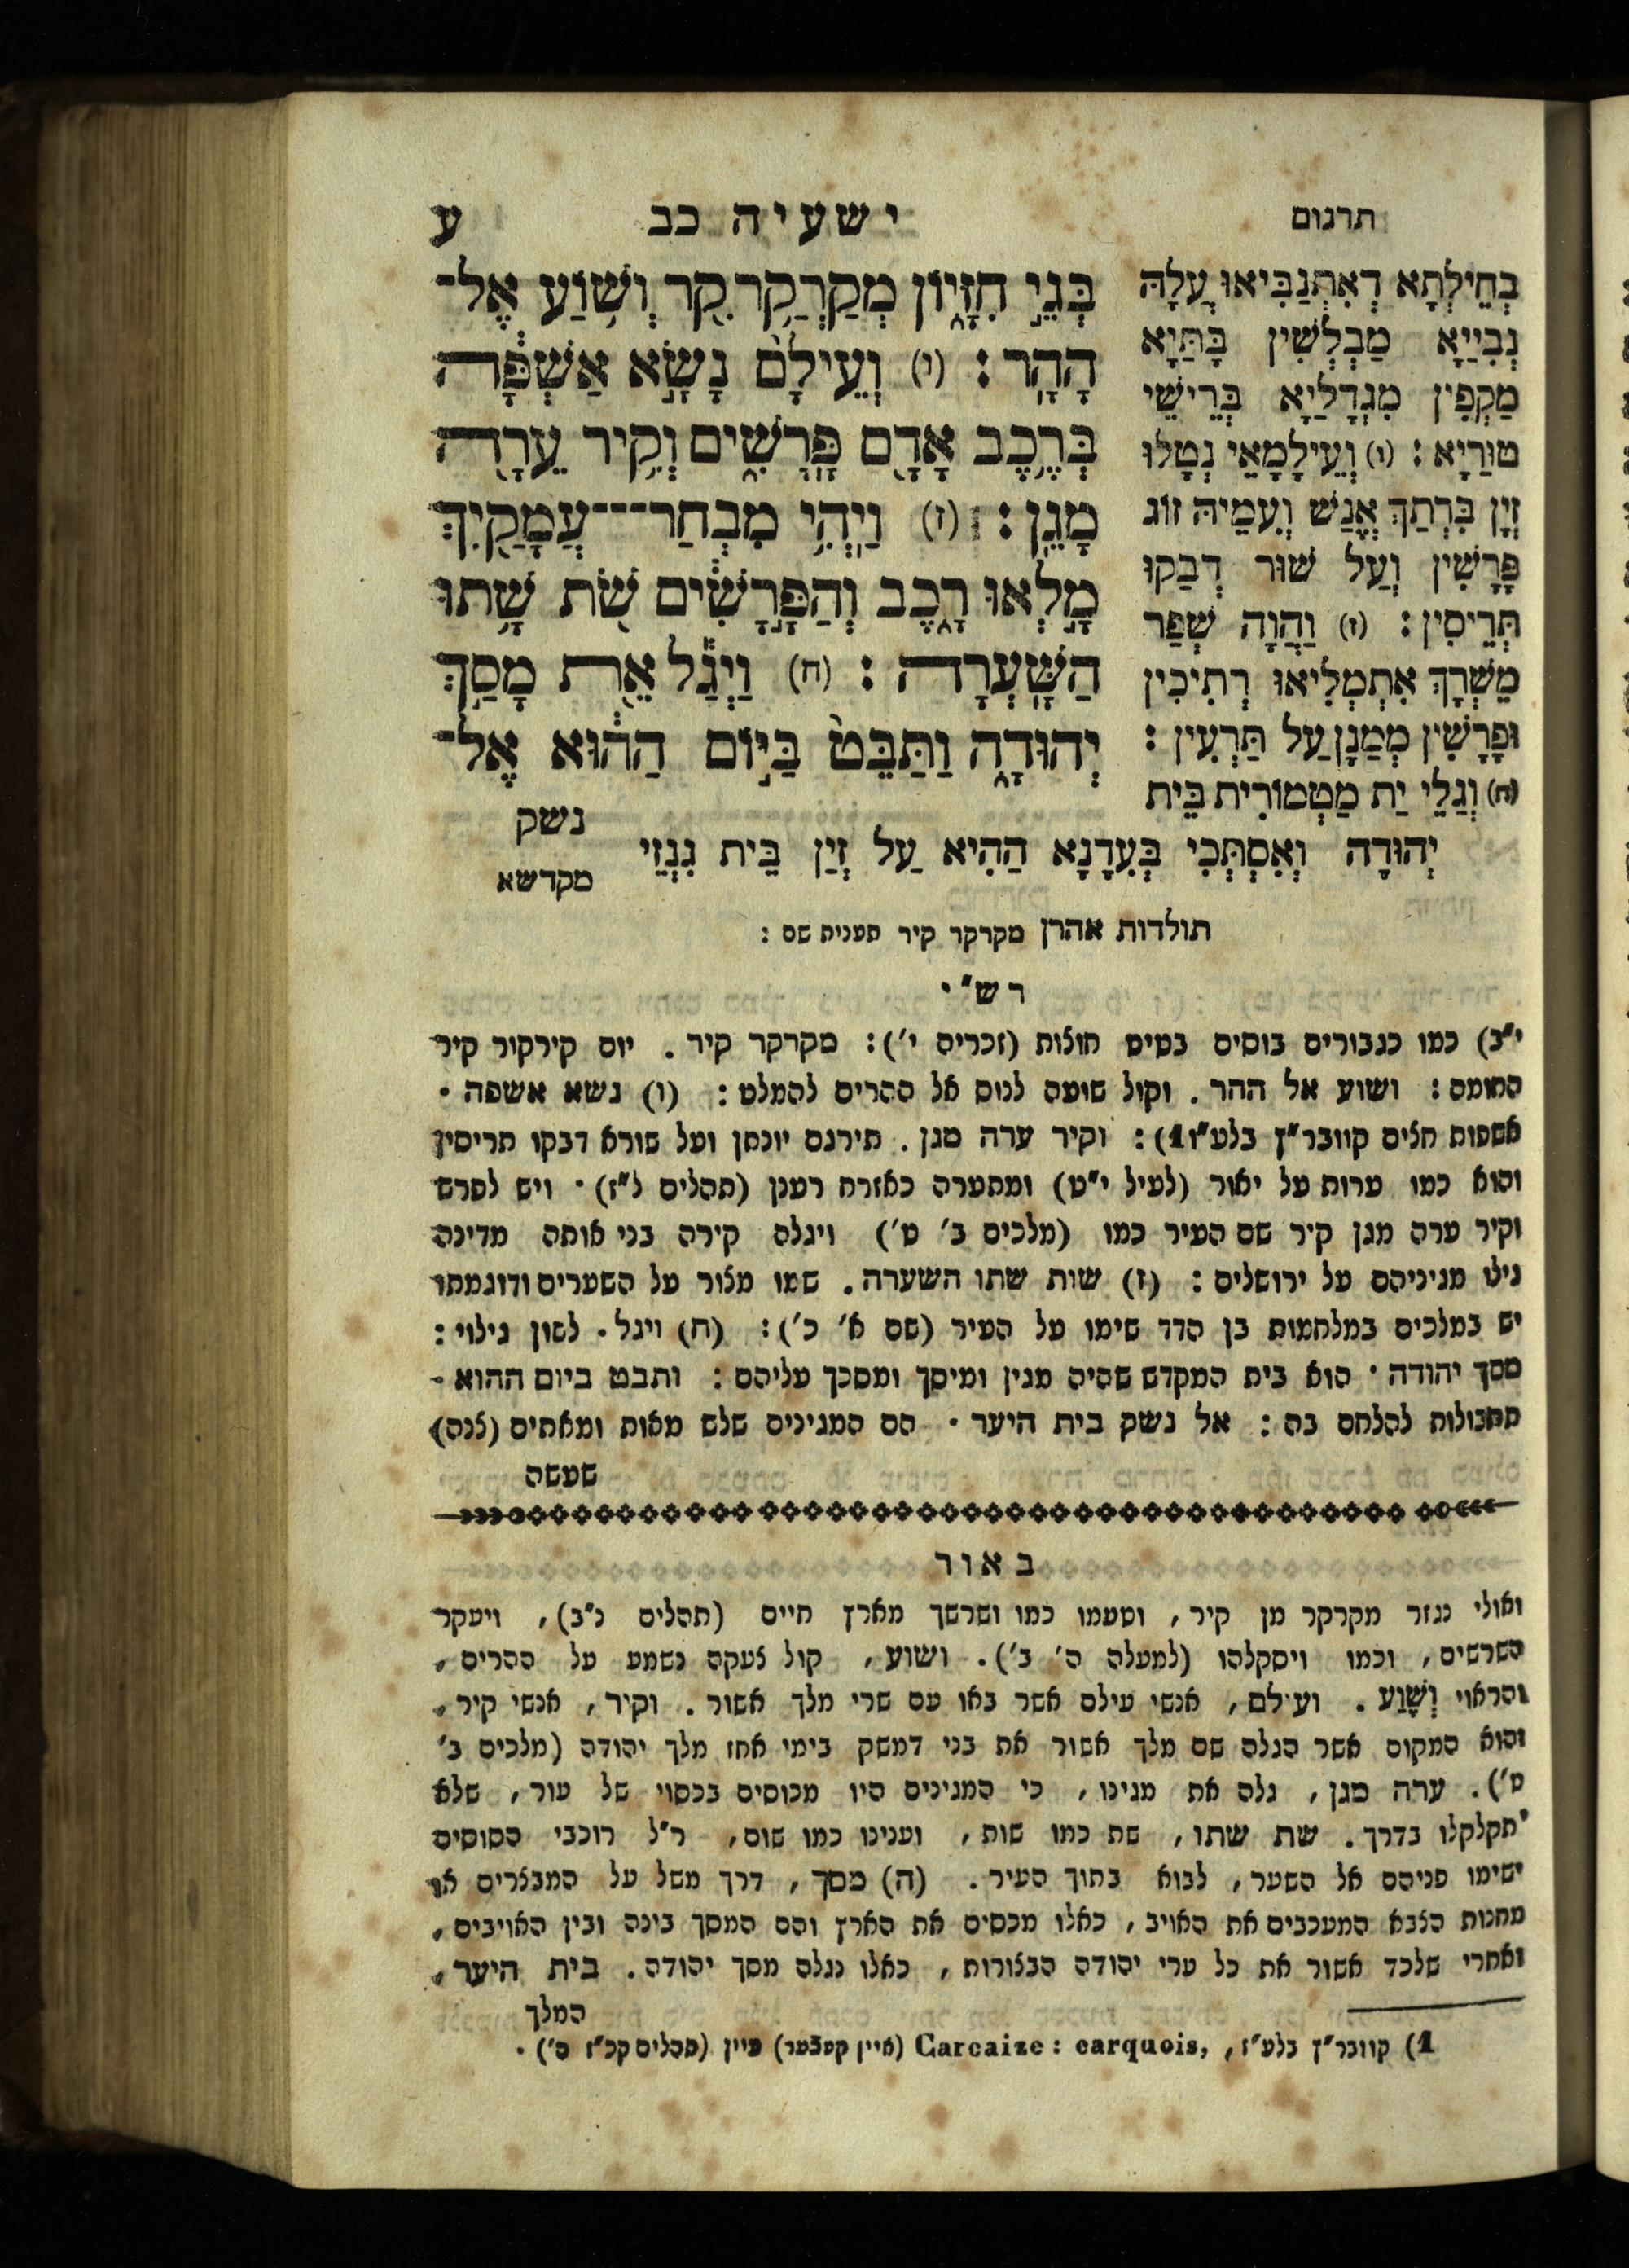 תרגום
ישעיה כב
ע
בְּגֵ֣י חִזָּי֑וֹן מְקַרְקַ֥ר קִ֖ר וְשׁ֥וֹעַ אֶל־
הָהָֽר׃ (ו) וְעֵילָם֙ נָשָׂ֣א אַשְׁפָּ֔ה
בְּרֶ֥כֶב אָדָ֖ם פָּֽרָשִׁ֑ים וְקִ֥יר עֵרָ֖ה
מָגֵֽן׃ (ז) וַיְהִ֥י מִבְחַר־־־עֲמָקַ֖יִךְ
מָ֣לְאוּ רָ֑כֶב וְהַפָּ֣רָשִׁ֔ים שֹׁ֖ת שָׁ֥תוּ
הַשָּֽׁעְרָה׃ (ח) וַיְגַ֕ל אֵ֖ת מָסַ֣ךְ
יְהוּדָ֑ה וַתַּבֵּט֙ בַּיּ֣וֹם הַה֔וּא אֶל־
נשק
בְּחֵילְתָא דְאִתְנַבִּיאוּ עֲלָהּ
נְבִיַיָא מַבְלְשִׁין בָּתַּיָא
מַקְפִין מִגְדָלַיָא בְּרֵישֵׁי
טוּרַיָא׃ (ו) וְעֵילָמָאֵי נְטָלוּ
זְיָן בִּרְתַךְ אֱנַשׁ וְעִמֵיהּ זוֹג
פָּרָשִׁין וְעַל שׁוּר דְבַקוּ
תְּרֵיסִין׃ (ז) וַהֲוָה שְׁפַר
מֵשְׁרָךְ אִתְמְלִיאוּ רְתִיכִין
וּפָרָשִׁין מְמַנָן עַל תַּרְעִין׃
(ח) וְגַלֵי יַת מַטְמוֹרִית בֵּית
יְהוּדָה וְאִסְתְּכִי בְּעִדָנָא הַהִיא עַל זְיַן בֵּית גִנְזֵי
מקדשא
תולדות אהרן מקרקר קיר תענית שם :
רש"י
י"ב) כמו כגבורים בוסים בטיט חוצות (זכריה י') : מקרקר קיר . יום קירקור קיר
החומה : ושוע אל ההר . וקול שועה לנוס אל ההרים להמלט : (ו) נשא אשפה .
אשפות חצים קוובר"ץ בלע"ז1) : וקיר ערה מגן . תירגם יונתן ועל שורא דבקו תריסין
והוא כמו ערות על יאור (לעיל י"ט) ומתערה כאזרח רענן (תהלים ל"ז) . ויש לפרש
וקיר ערה מגן קיר שם העיר כמו (מלכים ב' ט') ויגלה קירה בני אותה מדינה
גילו מגיניהם על ירושלים : (ז) שות שתו השערה . שמו מצור על השערים ודוגמתו
יש במלכים במלחמות בן הדד שימו על העיר (שם א' כ') : (ח) ויגל . לשון גילוי :
מסך יהודה . הוא בית המקדש שהיה מגין ומיסך ומסכך עליהם : ותבט ביום ההוא .
תחבולות להלחם בה : אל נשק בית היער . הם המגינים שלש מאות ומאתים (צנה)
שעשה
באור
ואולי נגזר מקרקר מן קיר , וטעמו כמו ושרשך מארץ חיים (תהלים נ"ב) , ויעקר
השרשים , וכמו ויסקלהו (למעלה ה' ב') . ושוע , קול צעקה נשמע על ההרים ,
והראוי וְשָׁוַע . ועילם , אנשי עילם אשר באו עם שרי מלך אשור . וקיר , אנשי קיר ,
והוא המקום אשר הגלה שם מלך אשור את בני דמשק בימי אחז מלך יהודה (מלכים ב'
ט') . ערה מגן , גלה את מגינו , כי המגינים היו מכוסים בכסוי של עור , שלא
יתקלקלו בדרך . שת שתו , שת כמו שות , וענינו כמו שום , ר"ל רוכבי הסוסים
ישימו פניהם אל השער , לבוא בתוך העיר . (ה) מסך , דרך משל על המבצרים או
מחנות הצבא המעכבים את האויב , כאלו מכסים את הארץ והם המסך בינה ובין האויבים ,
ואחרי שלכד אשור את כל ערי יהודה הבצורות , כאלו נגלה מסך יהודה . בית היער ,
המלך
1) קוובר"ץ בלע"ז , Carcaize : carquois, (איין קעכער) עיין (תהלים קכ"ז ה') .